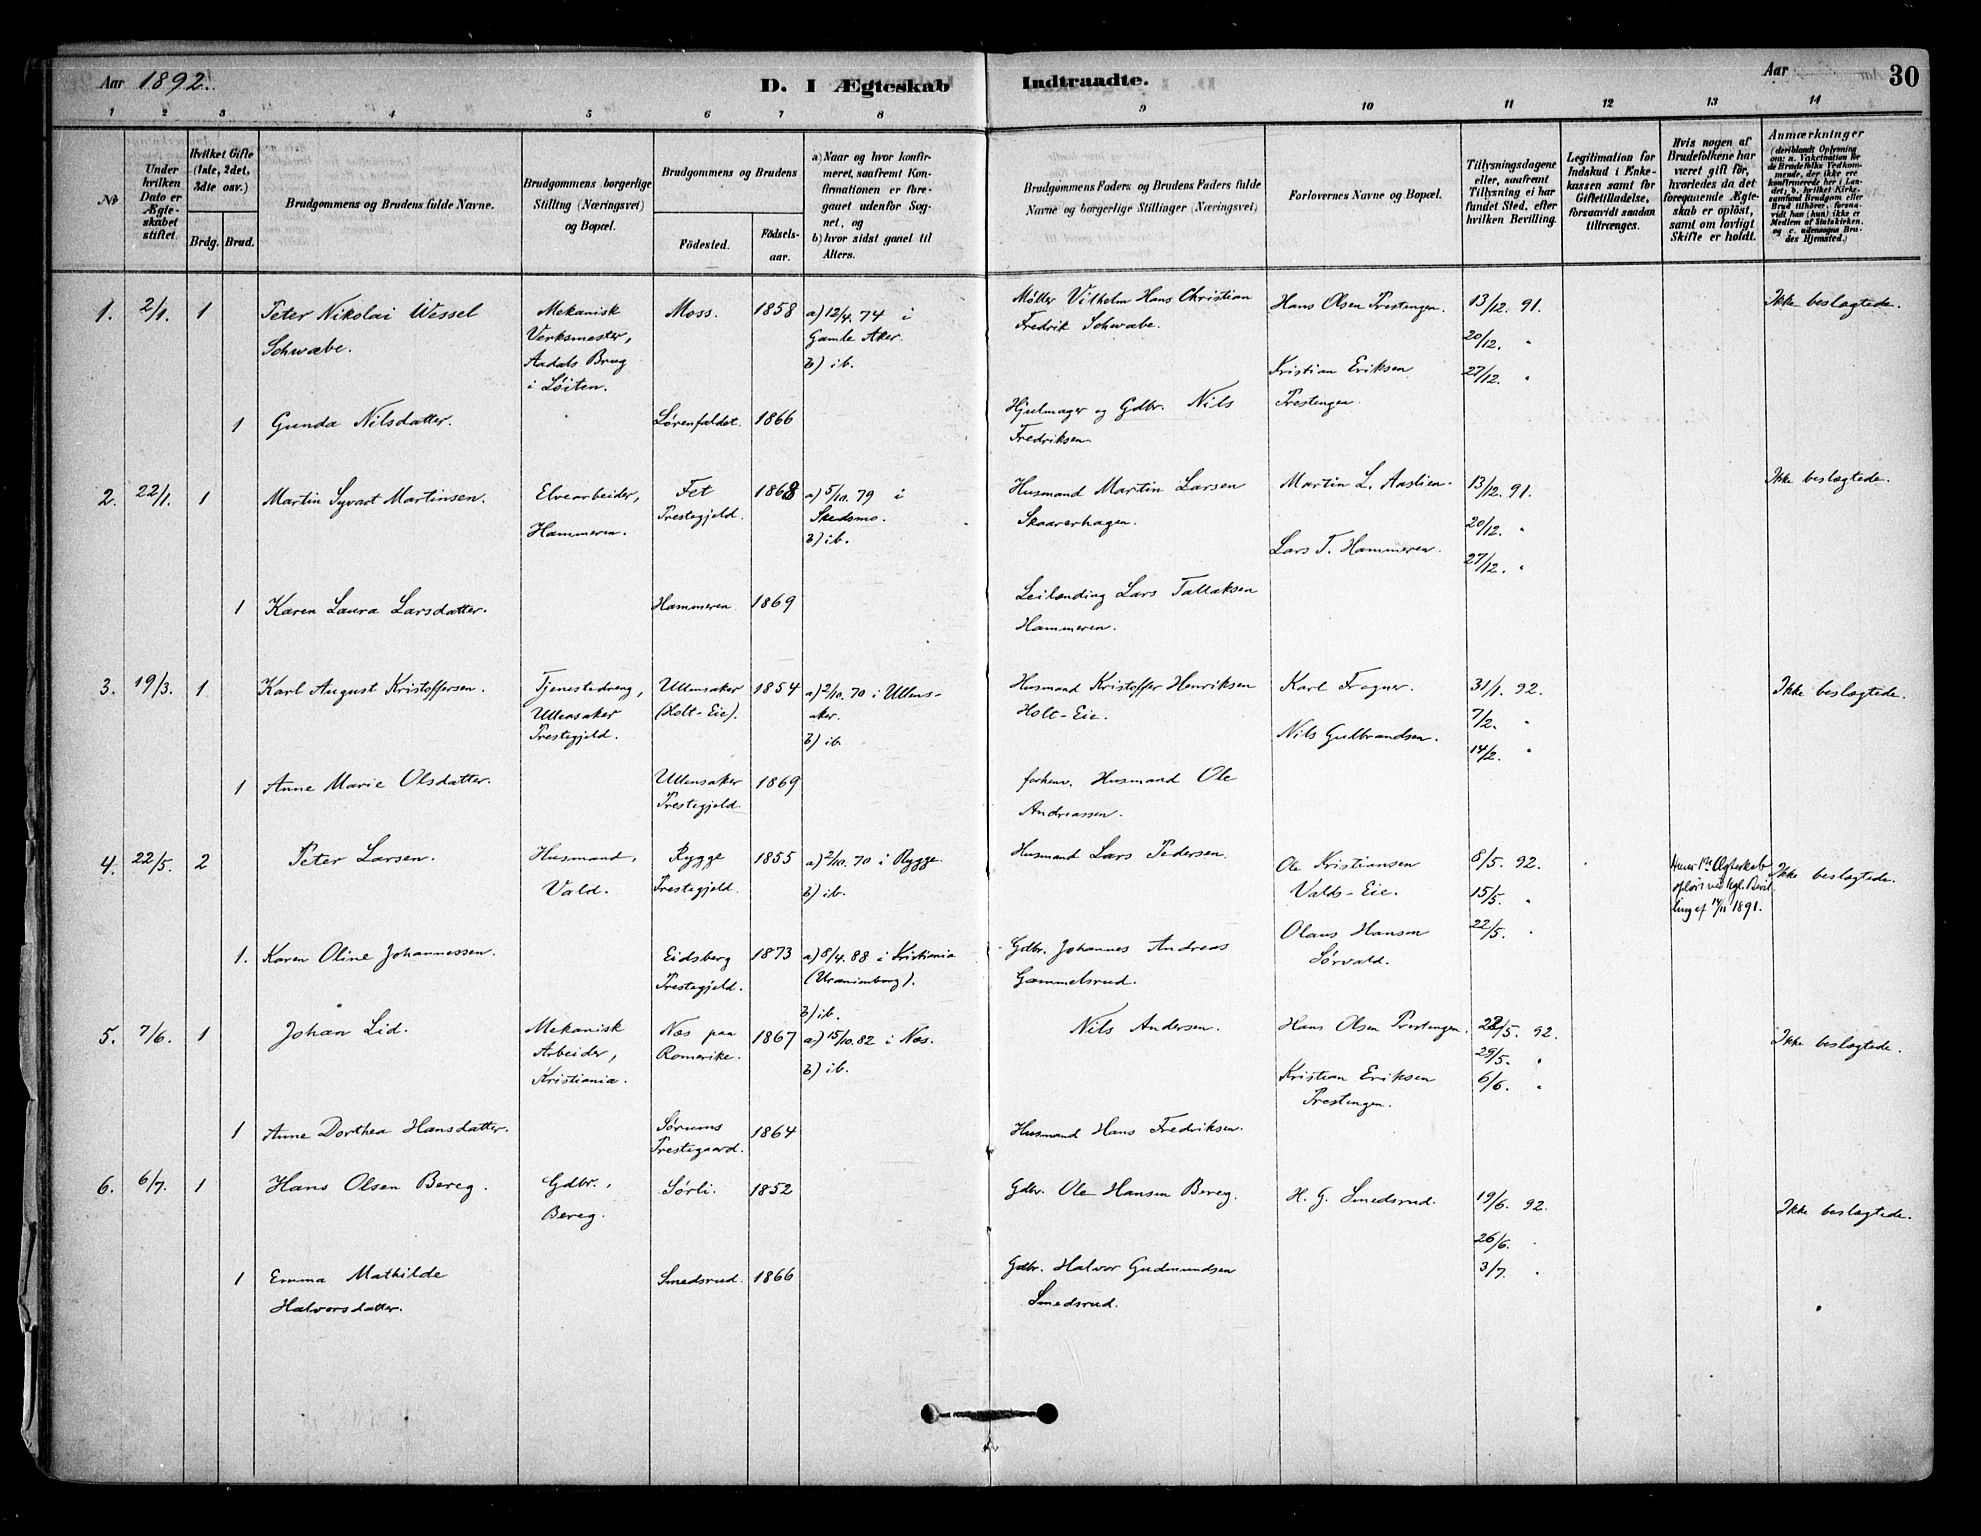 Aar 1892. D. I Ægteskab Indtraadte. Aar 30
1 2 3 4 5 6 7 8 9 10 11 12 13 14
No
Under hvilken Dato er Ægteskabet stiftet.
Hvilket Gifte (1ste, 2det, 3dte osv.)
Brdg. Brud.
Brudgommens og Brudens fulde Navne.
Brudgommens borgerlige Stilling (Næringsvei) og Bopæl.
Brudgommens og Brudens
Födested. Födselsaar.
a) Naar og hvor konfirmeret, saafremt Konfirmationen er foregaaet udenfor Sognet, og
b) hvor sidst gaaet til Alters.
Brudgommens Faders og Brudens Faders fulde Navne og borgerlige Stillinger (Næringsvei)
Forlovernes Navne og Bopæl.
Tillysningsdagene eller, saafremt Tillysning ei har fundet Sted, efter hvilken Bevilling.
Legitimation for Indskud i Enkekassen samt for Giftetilladelse, forsaavidt saadan tiltrænges.
Hvis nogen af Brudefolkene har været gift før, hvorledes da det foregaaende Ægteskab er opløst, samt om lovligt Skifte er holdt.
Anmærkninger
(deriblandt Oplysning om: a. Vakcination for de Brudefolks Vedkommende, der ikke ere konfirmerede her i Landet; b. hvilket Kirkesamfund Brudgom eller Brud tilhörer, forsaavidt han (hun) ikke er Medlem af Statskirken, og c. udensogns Brudes Hjemsted.)
1. 2/1. 1 Peter Nikolai Wessel Schwabe.
Mekanisk Verksmester, Aadals Brug i Løiten.
Moss. 1858
a) 12/4. 74 i Gamle Aker.
b) ib.
Møller Vilhelm Hans Christian Fredrik Schwabe.
Hans Olsen Prestengen.
Kristian Eriksen Prestengen.
13/12. 91.
20/12. "
27/12. "
Ikke beslægtede.
1 Gunda Nilsdatter.
Lørenfaldet. 1866
Hjulmager og Gdbr. Nils Fredriksen.
2. 22/1. 1 Martin Syvart Martinsen.
Elvearbeider, Hammeren.
Fet Prestegjeld. 1868
a) 5/10. 79 i Skedsmo.
b) ib.
Husmand Martin Larsen Skaarerhagen.
Martin L. Aaslien.
Lars T. Hammeren.
13/12. 91.
20/12. "
27/12. "
Ikke beslægtede.
1 Karen Laura Larsdatter.
Hammeren 1869
Leilending Lars Tallaksen Hammeren.
3. 19/3. 1 Karl August Kristoffersen.
Tjenestedreng, Ullensaker Prestegjeld.
Ullensaker (Holt-Eie). 1854
a) 2/10. 70 i Ullensaker.
b) ib.
Husmand Kristoffer Henriksen Holt-Eie.
Karl Frogner.
Nils Gulbrandsen.
31/1. 92.
7/2. "
14/2. "
Ikke beslægtede.
1 Anne Marie Olsdatter.
Ullensaker Prestegjeld. 1869
forhenv. Husmand Ole Andreassen.
4. 22/5. 2 Peter Larsen.
Husmand, Vald.
Rygge Prestegjeld. 1855
a) 2/10. 70 i Rygge.
b) ib.
Husmand Lars Pedersen.
Ole Kristiansen Valds-Eie.
Olaus Hansen Sørvald.
8/5. 92.
15/5. "
22/5. "
Ægteskab opløst ved kgl. Bevilling af 14/11 1891.
Ikke beslægtede.
1. Karen Oline Johannessen.
Eidsberg Prestegjeld. 1873
a) 8/4. 88 i Kristiania (Uranienborg).
b) ib.
Gdbr. Johannes Andreas Gammelsrud.
5. 7/6. 1 Johan Lid.
Mekanisk Arbeider, Kristiania.
Nes paa Romerike. 1867
a) 15/10. 82 i Nes.
b) ib.
Nils Andersen.
Hans Olsen Prestengen.
Kristian Eriksen Prestengen.
22/5. 92.
29/5. "
6/6. "
Ikke beslægtede.
1 Anne Dorthea Hansdatter.
Sørums Prestegaard. 1864
Husmand Hans Fredriksen.
6. 6/7. 1 Hans Olsen Bereg.
Gdbr., Bereg.
Sørli. 1852
Gdbr. Ole Hansen Bereg.
H. G. Smedsrud.
19/6. 92.
26/6. "
3/7. "
Ikke beslægtede.
1 Emma Mathilde Halvorsdatter.
Smedsrud. 1866
Gdbr. Halvor Gudmundsen Smedsrud.